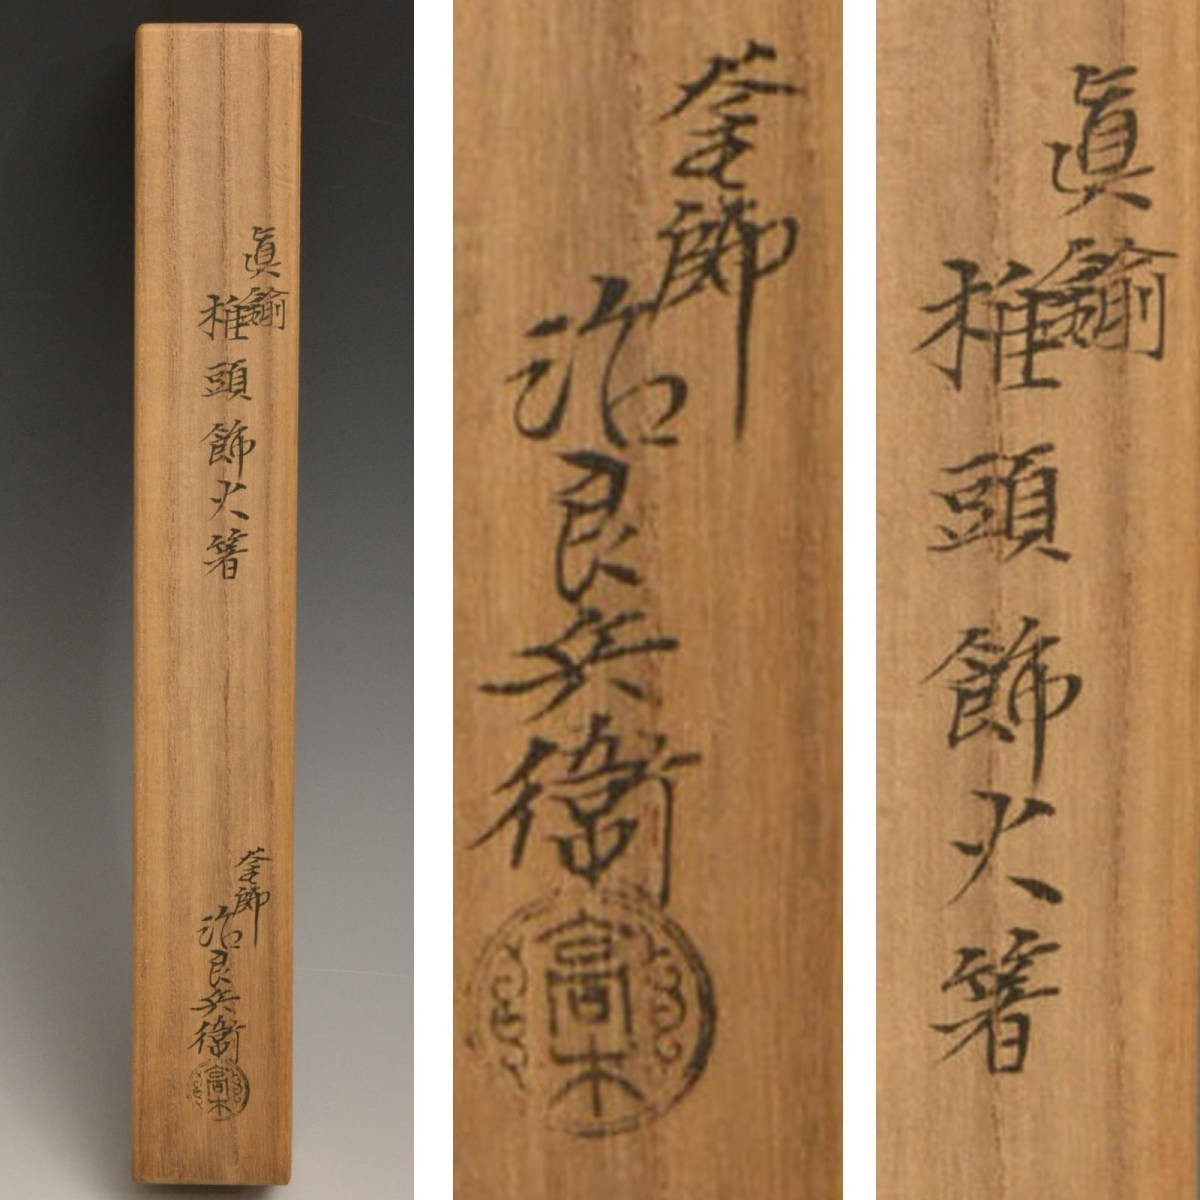 眞鍮
椎頭飾火箸
釜師
治良兵衛
高木
釜師
治良兵衛
高木
眞鍮
椎頭飾火箸